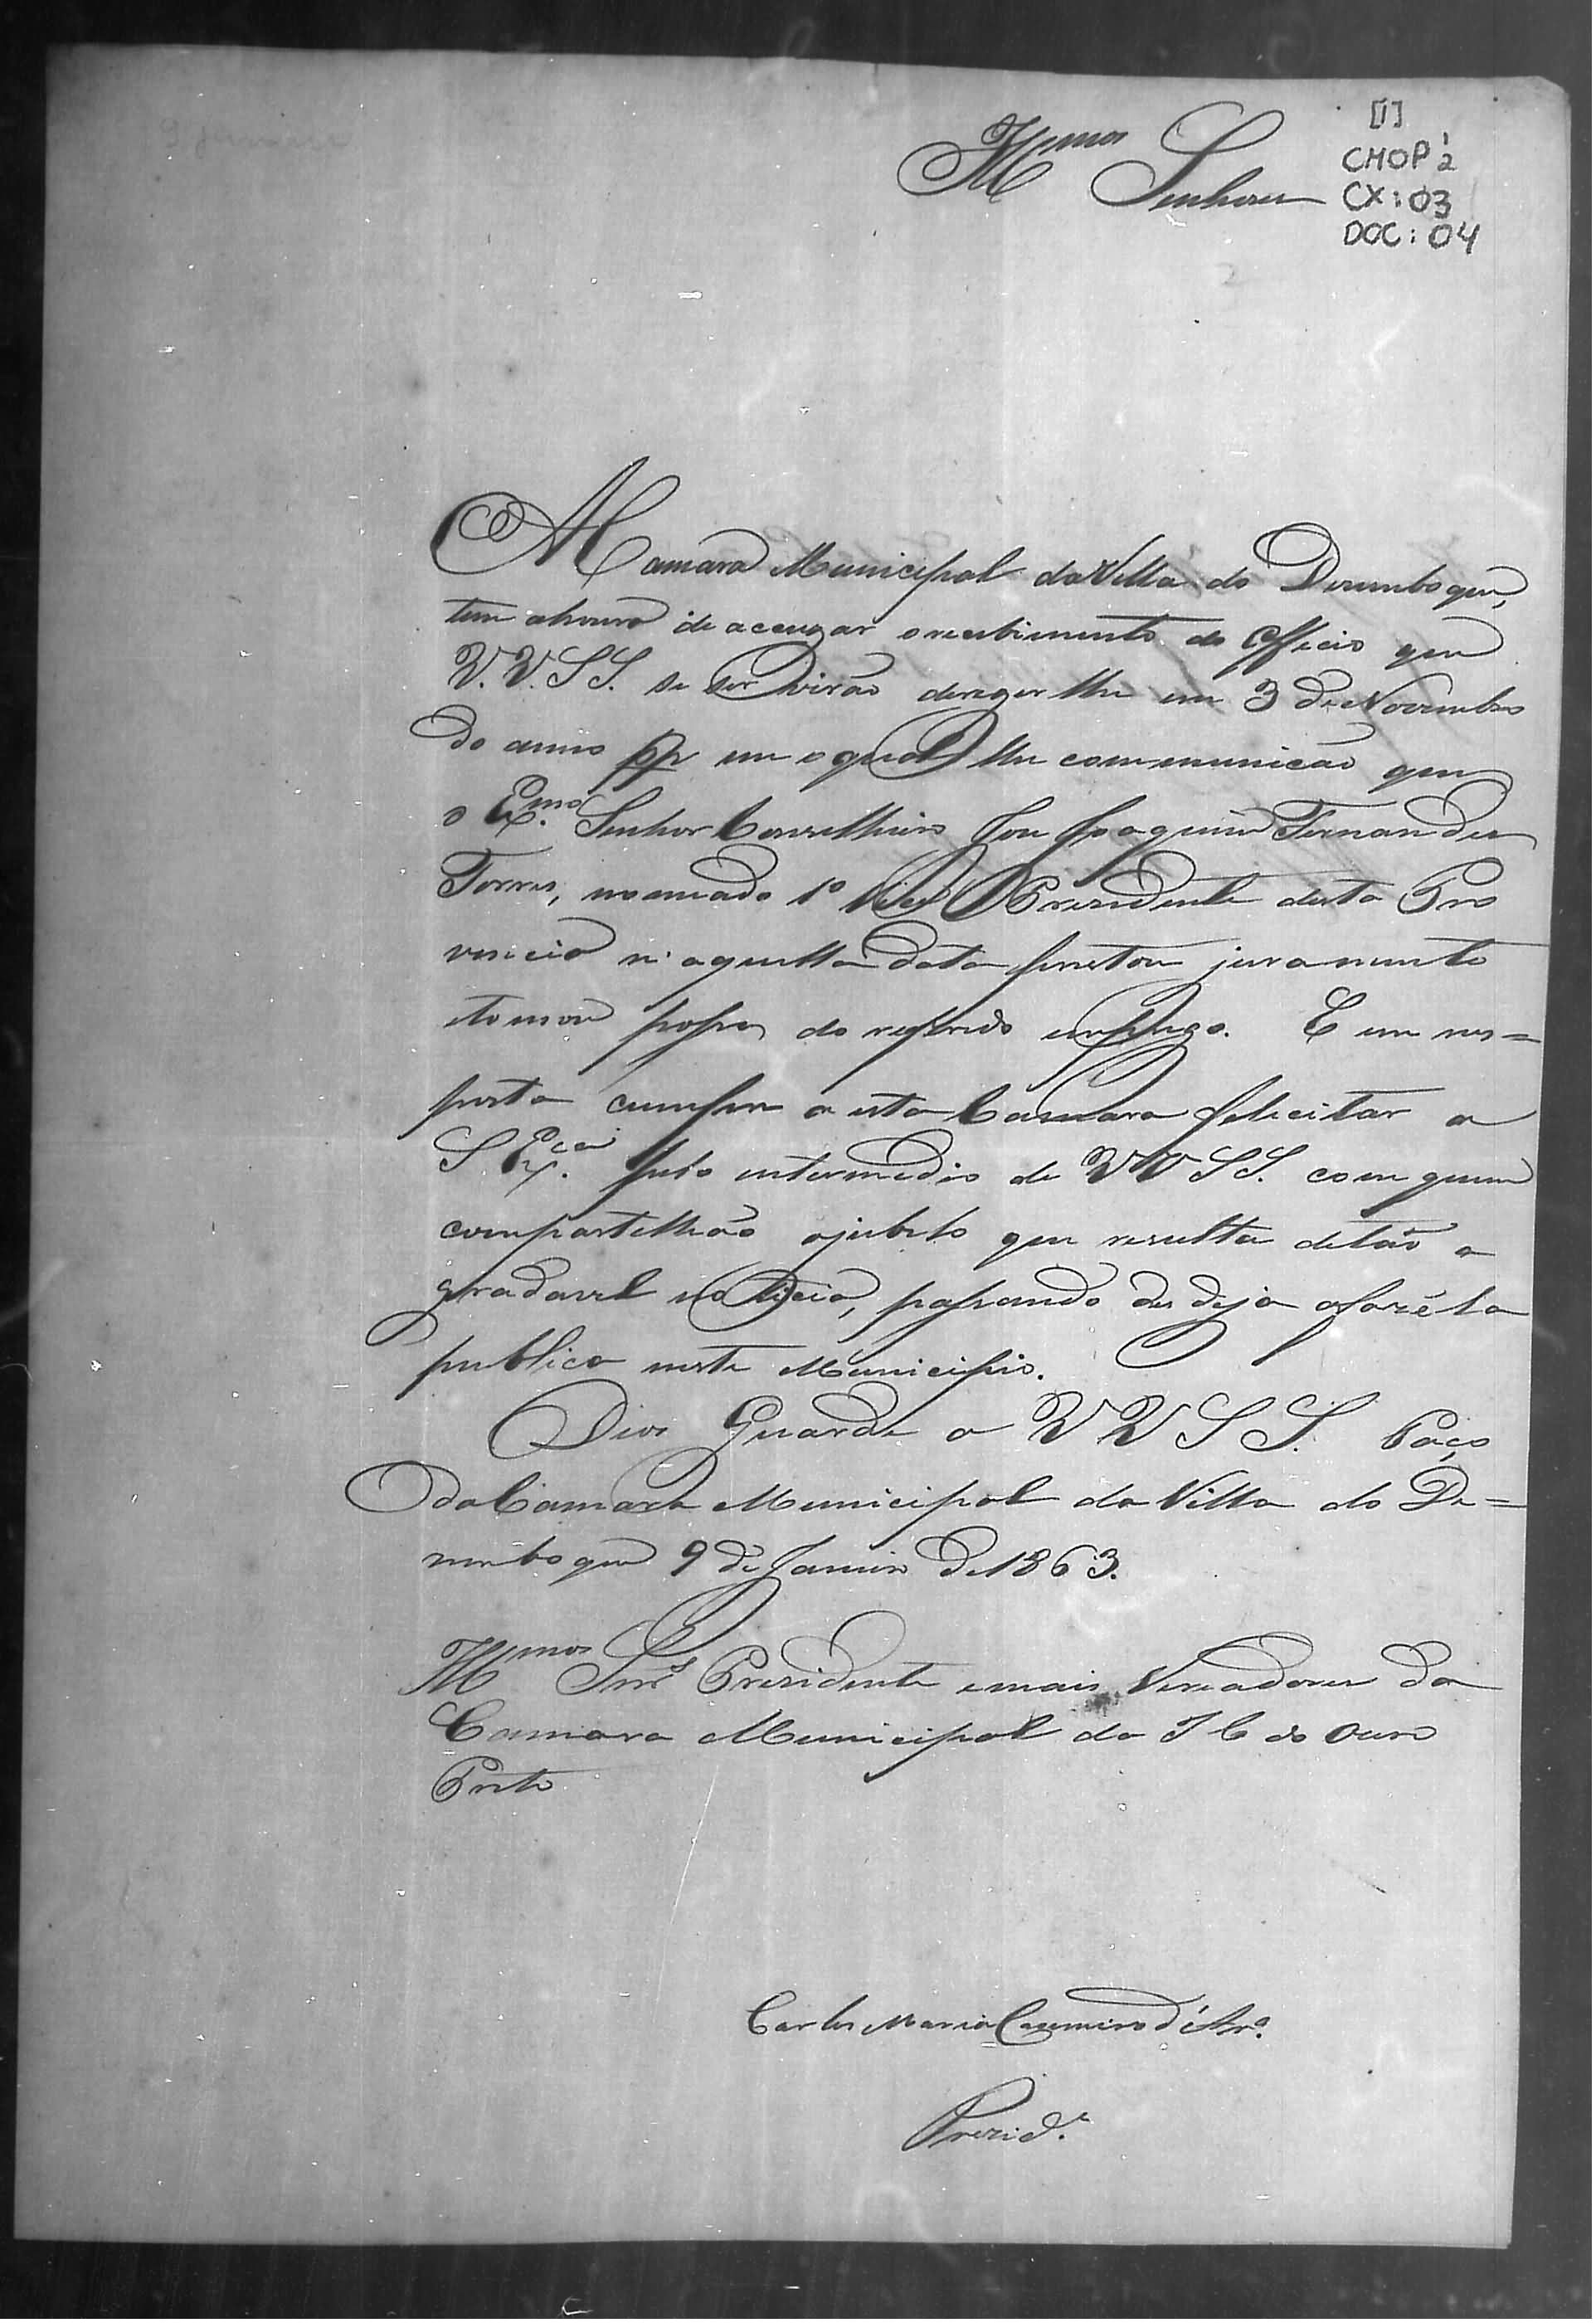 [1]
CMOP 1/2
CX: 03
DOC: 04
Illmos Senhores
A Camara Municipal da Villa do Dezemboque,
tem ahonra de accuzar o recebimento do Officio que
V.V.SS. se servirão deregir lhe em 3 de Novembro
do anno pp em o qual lhe communicão que
o Exmo. Senhor Conselheiro José Joaquim Fernandes
Torres, nomeado 1º Vice Presidente desta Pro
vincia n'aquella data prestou juramento
etomou posse do referido emprego. E em res=
posta cumpre a esta Camara felicitar a
S Exca. pelo intermedio de VVSS. com quem
compartilhão ojubilo que resulta detão a
gradavel noticia, passando desdeja afazêla
publica neste Municipio.
Deos Guarde a VVSS. Paço
da Camara Municipal da Villa do De=
zemboque 9 de Janeiro de 1863.
Illmos Snrs Presidente emais Vereadores da
Camara Municipal da I C do Ouro
Preto
Carlos Maria Cazemiro d'Ar.ª
Prezid.e